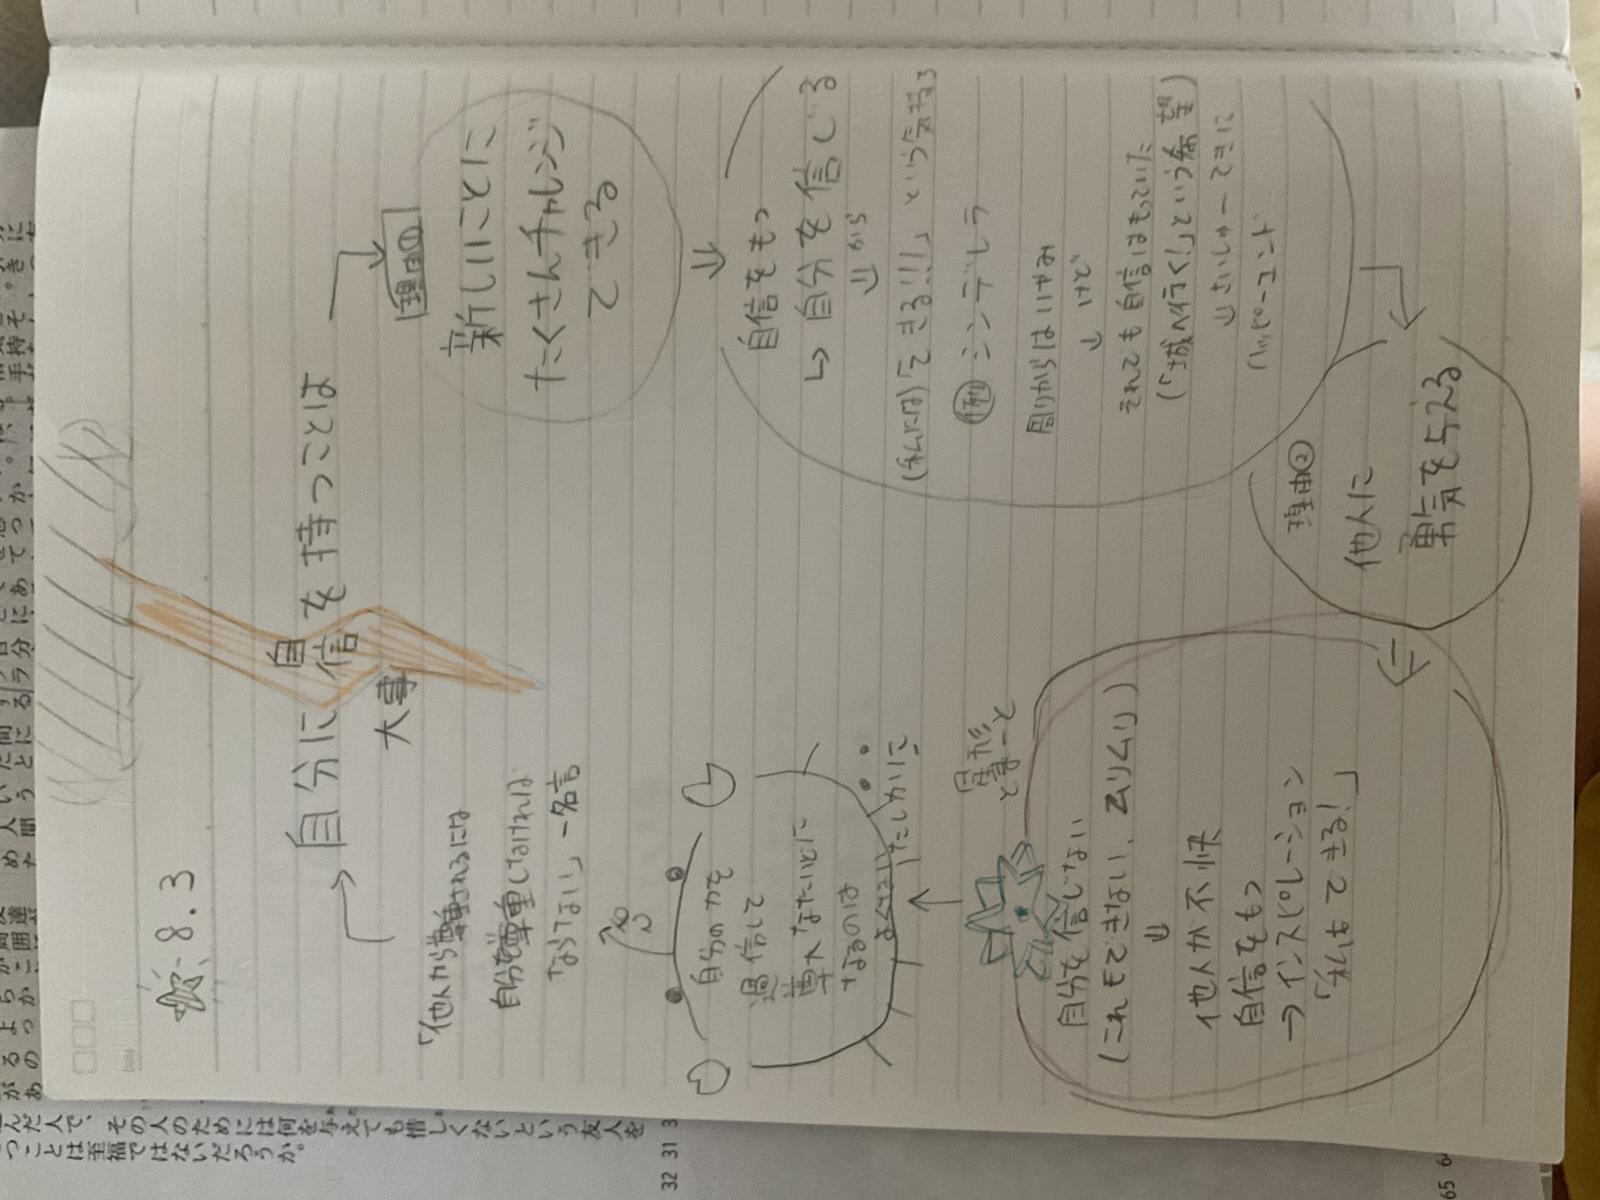 8.3
自分に自信を持つことは
大事
理由①
新しいことに
たくさんチャレンジ
できる
自信をもつ
↳ 自分を信じる
⇓ から
(私には)「できる!!!」という気持ち
例 シンデレラ
周りからはいやみ
↓ けど
それでも自信はもっていた
(「城へ行く!」という希望)
↓ さいしゅーてきに
(ハッピーエンド
理由②
他人に
勇気を与える
自分を信じない
(これもできない、ムリムリ)
⇓
他人が不快
自信をもつ
→インスピレーション
「私もできる!」
「他人から尊重されるには
自分を尊重しなければ
ならない」-名言
自分の力を
過信して
尊大なたいどに
なるのは
よくない
たしかに
32 31 3
65 6
んだ人で、その人のためには何を与えても惜しくないという友人を
つことは至福ではないだろうか。